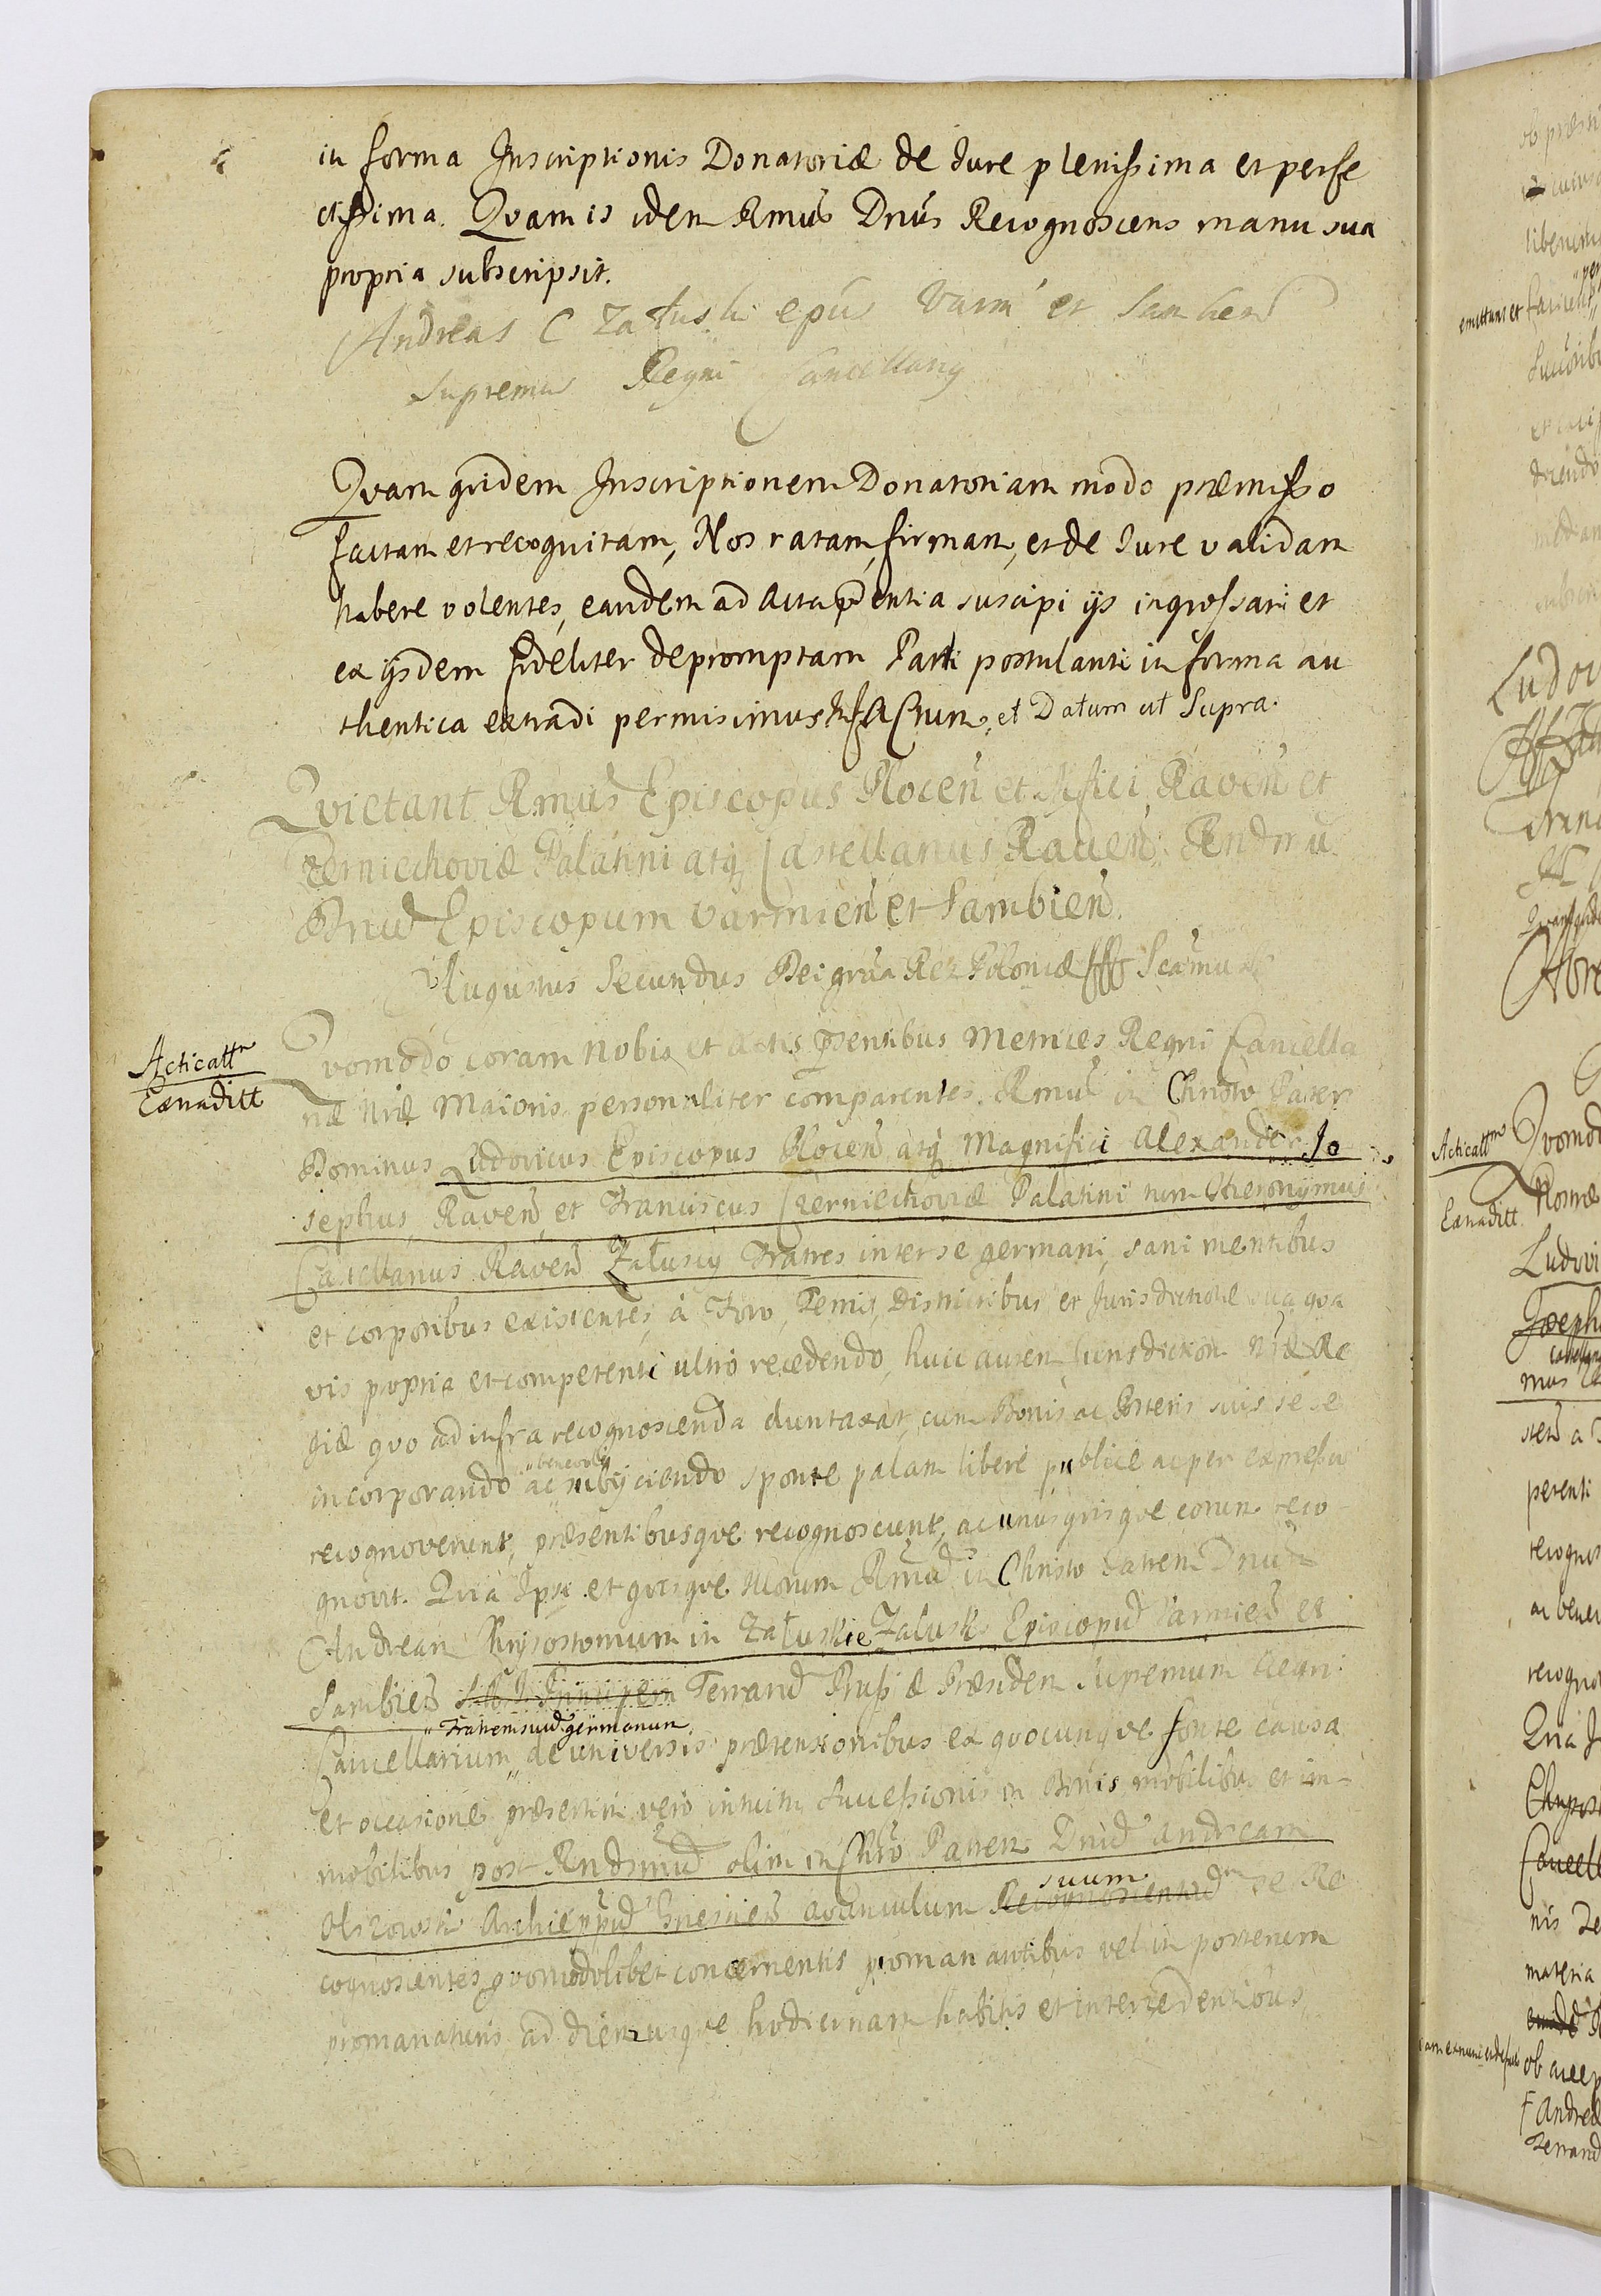 in forma Inscriptionis Donatoriæ de Jure plenissima et perfe
ctissima. Qvam is idem Rmus Dnus Recognoscens manu sua
propria subscripsit.
Andreas C Załuski epus Varm et Sambien
Supremus Regni Cancellarius
Qvam qvidem Inscriptionem Donatoriam modo præmisso
factam et recognitam, Nos ratam, firmam, et de Jure validam
habere volentes, eandem ad Acta pntia suscipi ijs ingrossari et
ex ijsdem fideliter depromptam Parti postulanti in forma au
thentica extradi permisimus. Actum, et Datum ut Supra.
Qvietant Rmus Episcopus Plocen et Mfici Raven et
Czerniechoviæ Palatini atq Castellanus Raven Rndmu
Dnud Episcopum Varmien et Sambien
Augustus Secundus Dei gratia Rex Poloniæ Scamus
Acticattr
Extraditt
Qvomodo coram nobis et Actis psentibus Metrices Regni Cancella
riæ Nræ Maioris personaliter comparentes Rmus in Christo Pater
Dominus Ludovicus Episcopus Plocen atq Magnifici Alexander Jo
sephus Raven et Franciscus Czerniechoviæ Palatini tum Hieronymus
Castellanus Raven Załuscy Fratres inter se germani, sani mentibus
et corporibus existentes, à Foro, Terris, Districtibus et Jurisdictione sua qva
vis propria et competenti ultro recedendo, huic autem Jurisdiction Nræ Re
giæ qvo ad infra recognoscenda duntaxat, cum Bonis ac Posteris suis sese
incorporando ac "benevole" subijciendo sponte palam libere publice ac per expressu
recognoverunt, præsentibusqve recognoscunt, ac unusqvisqve eorum reco
gnovit. Qvia Ipsi et qvisqve Illorum Rmud in Christo Patrem Dnud
Andream Chrysostomum in Załuskie Załuski Episcopud Varmien et
Sambien Terrarud Prussiæ Præsidem Supremum Regni
Cancellarium "Fratrem suud germanum" de universis prætensionibus ex qvocunqve fonte causa
et occasione, præsertim vero intuitu Successionis in Bonis mobilibus et im-
mobilibus post Rndsmud olim in Chro Patrem Dnud Andream
Olszowski Archieppud Gnesnen avunculum suum se Re
cognoscentes qvomodolibet concernentis promanantibus vel in posterum
promanaturis ad diem usqve hodiernam habitis et intercedentibus